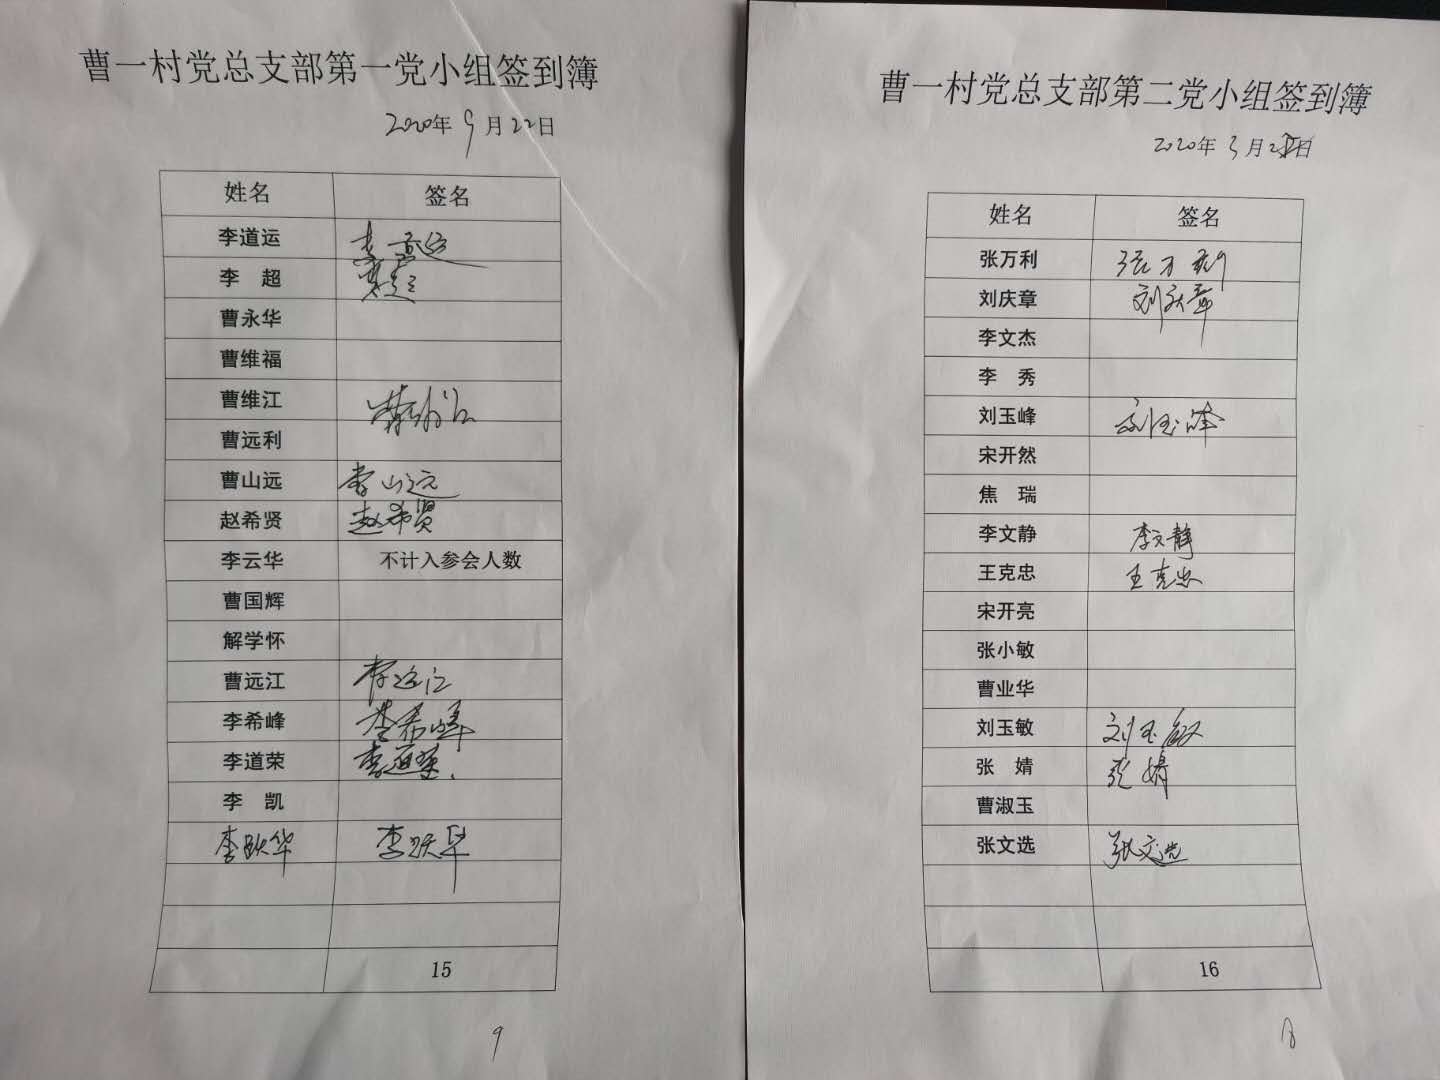 曹一村党总支部第一党小组签到簿
2020年9月22日
姓名 签名
李道运 李道运
李 超 李超
曹永华
曹维福
曹维江 曹维江
曹远利
曹山远 曹山远
赵希贤 赵希贤
李云华 不计入参会人数
曹国辉
解学怀
曹远江 曹远江
李希峰 李希峰
李道荣 李道荣
李 凯
李跃华 李跃华
15
9
曹一村党总支部第二党小组签到簿
2020年 月 日
姓名 签名
张万利 张万利
刘庆章 刘庆章
李文杰
李 秀
刘玉峰 刘玉峰
宋开然
焦 瑞
李文静 李文静
王克忠 王克忠
宋开亮
张小敏
曹业华
刘玉敏 刘玉敏
张 婧 张婧
曹淑玉
张文选 张文选
16
8